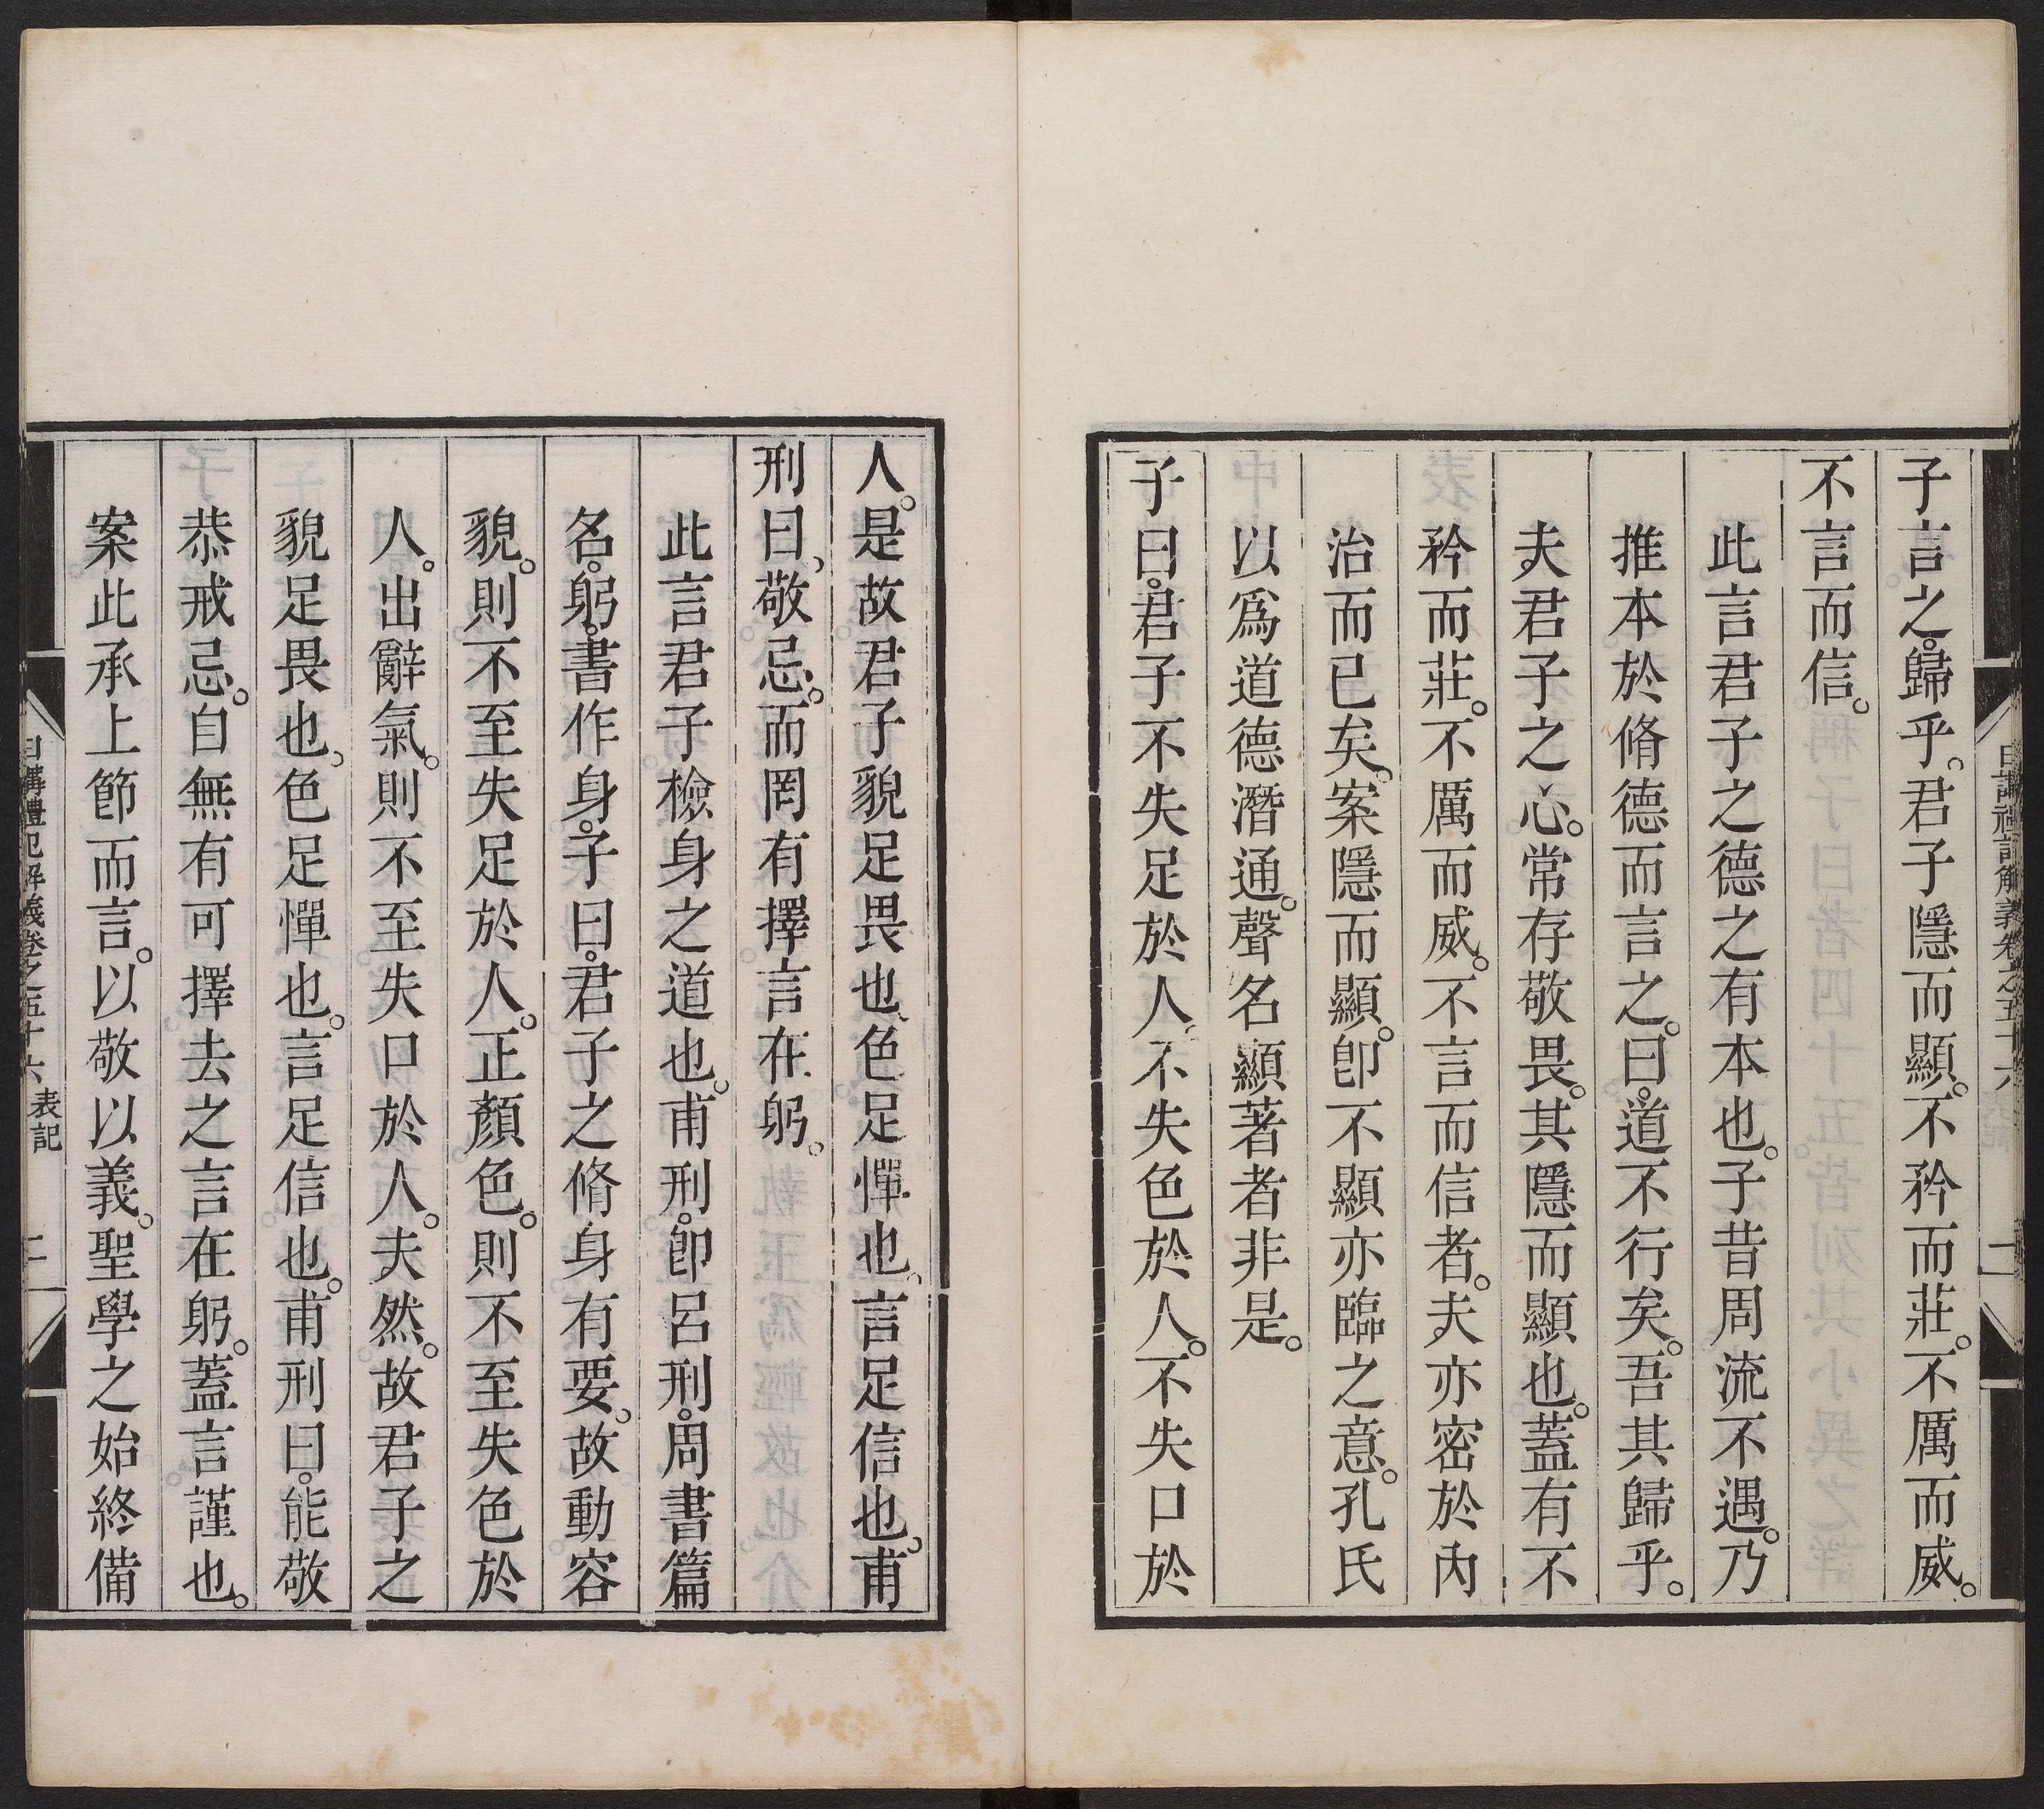 子言之。歸乎。君子隱而顯。不矜而莊。不厲而威。
不言而信。
此言君子之德之有本也。子昔周流不遇。乃
推本於脩德而言之。曰。道不行矣。吾其歸乎。
夫君子之心。常存敬畏。其隱而顯也。蓋有不
矜而莊。不厲而威。不言而信者。夫亦密於內
治而已矣。案隱而顯。卽不顯亦臨之意。孔氏
以爲道德潛通。聲名顯著者非是。
子曰。君子不失足於人。不失色於人。不失口於
日講禮記解義卷之五十六
一
人。是故君子貌足畏也。色足憚也。言足信也。甫
刑曰。敬忌。而罔有擇言在躬。
此言君子檢身之道也。甫刑。卽呂刑。周書篇
名。躬。書作身。子曰。君子之脩身有要。故動容
貌。則不至失足於人。正顏色。則不至失色於
人。出辭氣。則不至失口於人。夫然。故君子之
貌足畏也。色足憚也。言足信也。甫刑曰。能敬
恭戒忌。自無有可擇去之言在躬。蓋言謹也。
案此承上節而言。以敬以義。聖學之始終備
日講禮記解義卷之五十六 表記
二